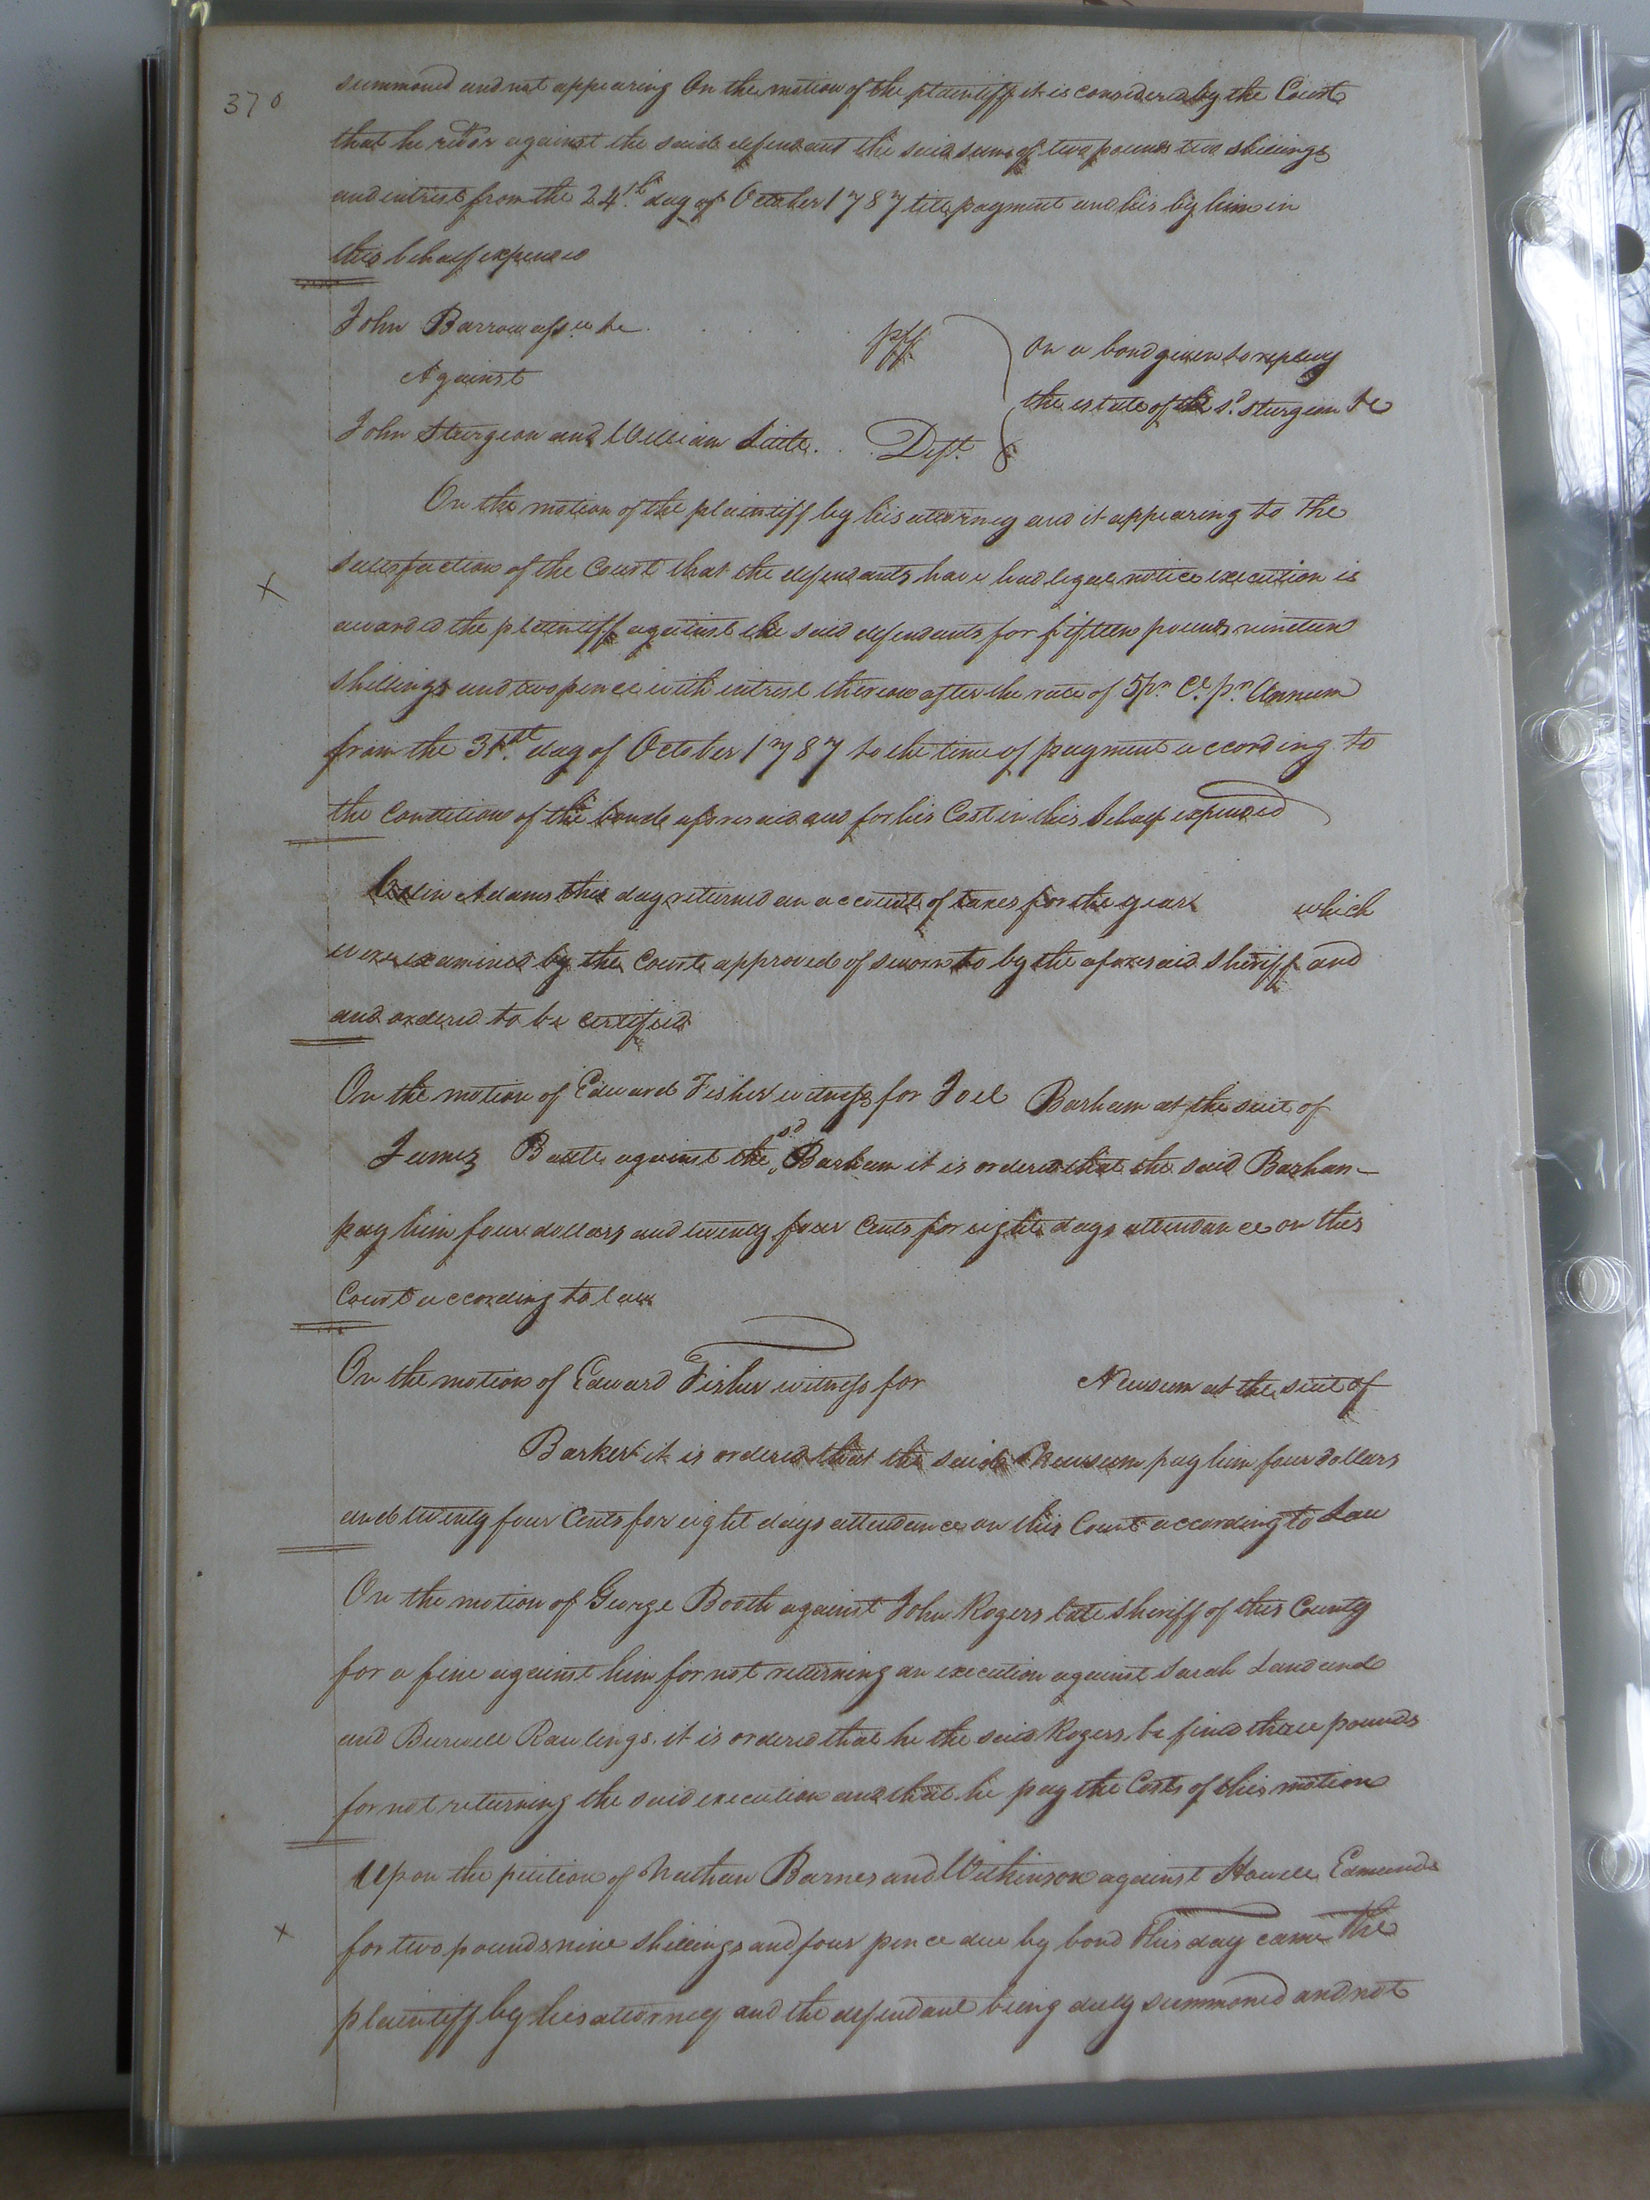 370
summoned and not appearing On the motion of the plaintiff it is considered by the Court
that he against the said defendant the said sum of two pounds two shillings
and intrest from the 24th. day of October 1787 till payment and his by him in
this behalf expended
John Barrow assee &c. plff
on a bond given to replevy
Against
the estate of the sd. Sturgeon &c
John Sturgeon and William Little. Deft.
On the motion of the plaintiff by his attorney and it appearing to the
satisfaction of the Court that the defendants have had legal notice execution is
x
awarded the plaintiff against the said defendants for fifteen pounds nineteen
shillings and two pence with intrest thereon after the rate of 5 pr. Ct. pr. Annum
from the 31st. day of October 1787 to the time of payment according to
the Condition of the bonde aforesaid and for his Cost in this behalf expended
Adams this day returned an account of taxes for the year which
were examined by the Court approved of sworn to by the aforesaid sheriff and
and ordered to be certified
On the motion of Edward Fisher witness for Joel Barham at the suit of
James Battle against the sd. Barham it is ordered that the said Barham
pay him four dollars and twenty four Cents for eight days attendance on this
Court according to law
On the motion of Edward Fisher witness for Newsum at the suit of
Barker it is ordered that the said Newsum pay him four dollars
and twenty four Cents for eight days attendance on this Court according to Law
On the motion of George Booth against John Rogers late sheriff of this County
for a fine against him for not returning an execution against Sarah Land and
and Burwell Rawlings. it is ordered that he the said Rogers be fined three pounds
for not returning the said execution and that he pay the Costs of this motion
Upon the petition of Nathan Barnes and Wilkinson against Howell Edmunds
x
for two pounds nine shillings and four pence due by bond this day came the
plaintiff by his attorney and the defendant being duly summoned and not